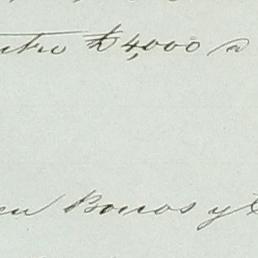 $4,000 a
en Bonos y